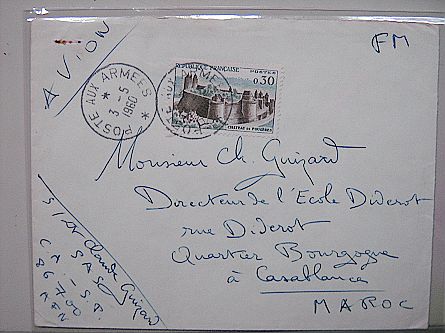 AVION
FM
POSTE AUX ARMEES
3-5
1960
REPUBLIQUE FRANÇAISE
POSTES
0,30
CHATEAU DE FOUGERES
Monsieur Ch. Guizard
Directeur de l'Ecole Diderot
rue Diderot
Quartier Bourgogne
à Casablanca
MAROC
Claude Guizard
SAS
S.P.
86 700
AFN